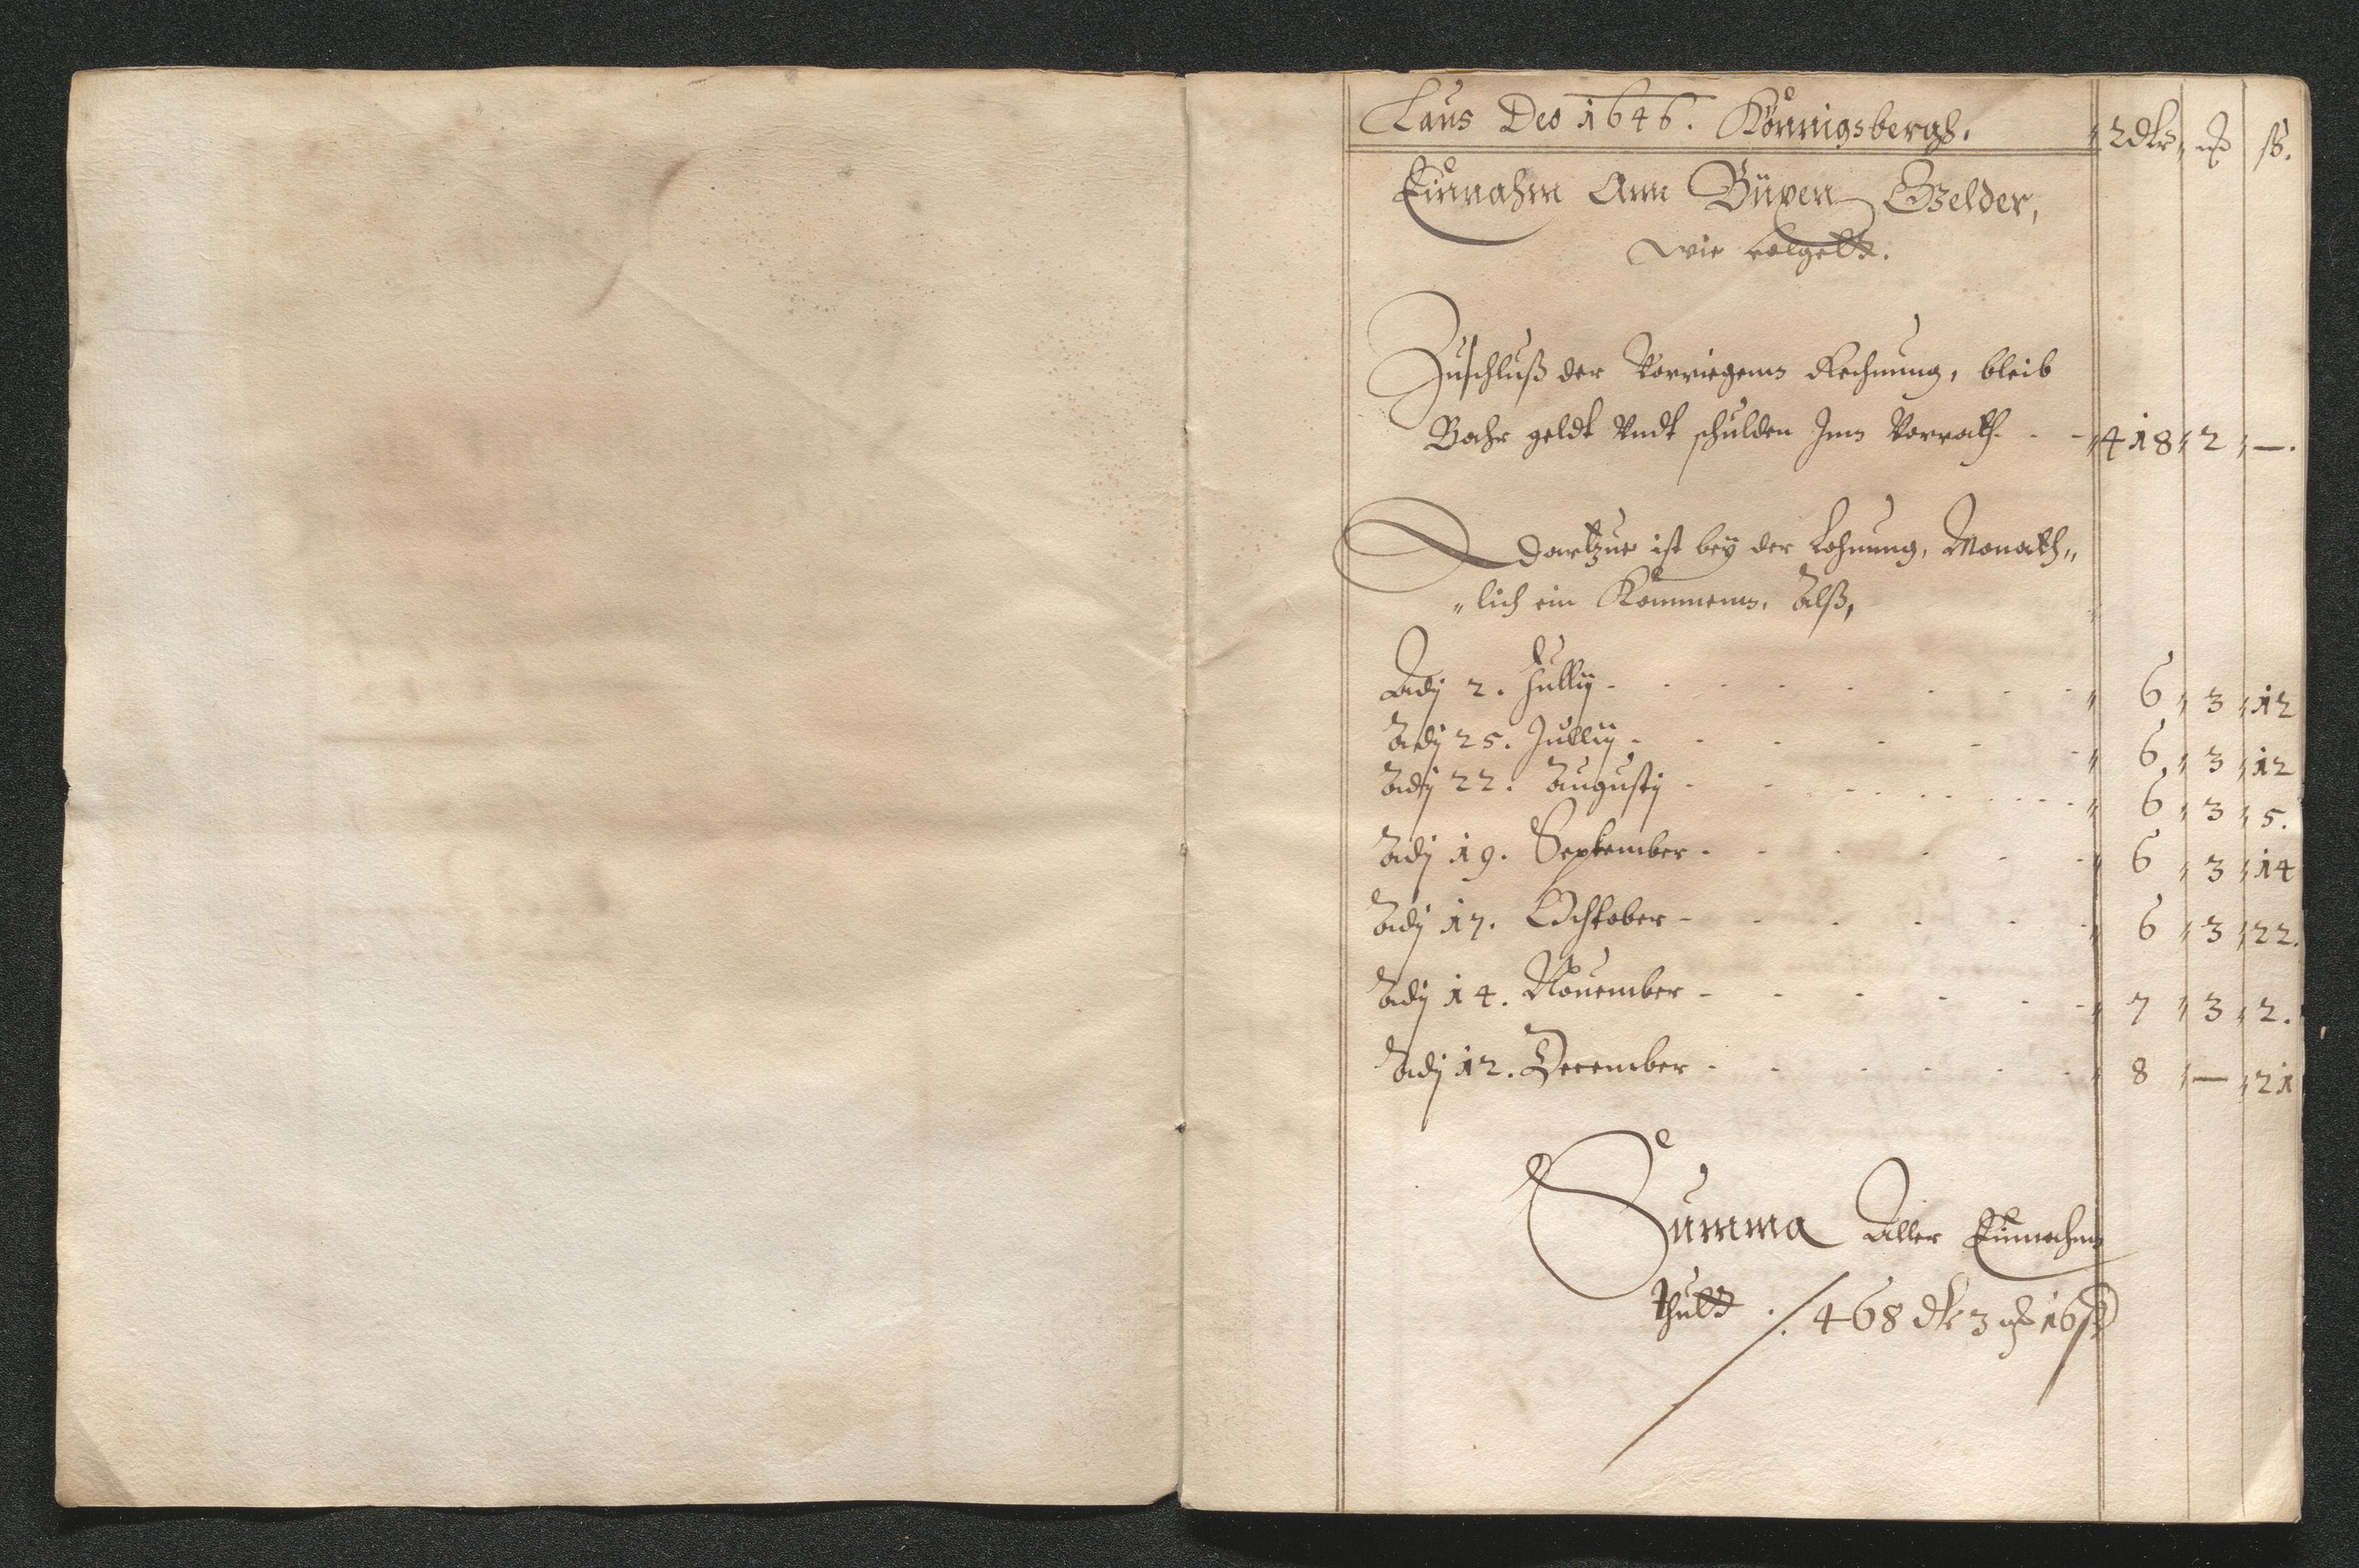 Laus Deo 1646. Könnigsbergh. 2dlr ß.
Einnahm Ann Büxen Gelder,
wie volgett.
Zuschluß der Vorriegenn Rechnung, bleib
Bahr geldt Vndt schulden Inn Vorrath - - 418 2 —.
Dartzue ist bey der Lohnung, Monath„
„lich ein Kommenn, Alß,
Adj 2. Jullij - - - - - - - 6 3 12
Adj 25. Jullij - - - - - - 6 3 12
Adj 22. Augustj - - - - - - 6 3 5.
Adj 19. September - - - - - - 6 3 14
Adj 17. Ochtober - - - - - - 6 3 22.
Adj 14. Nouember - - - - - - 7 3 2.
Adj 12. December - - - - - - 8 — 21
Summa Aller Einnahm
thutt ./. 468 dlr 3 16 ß